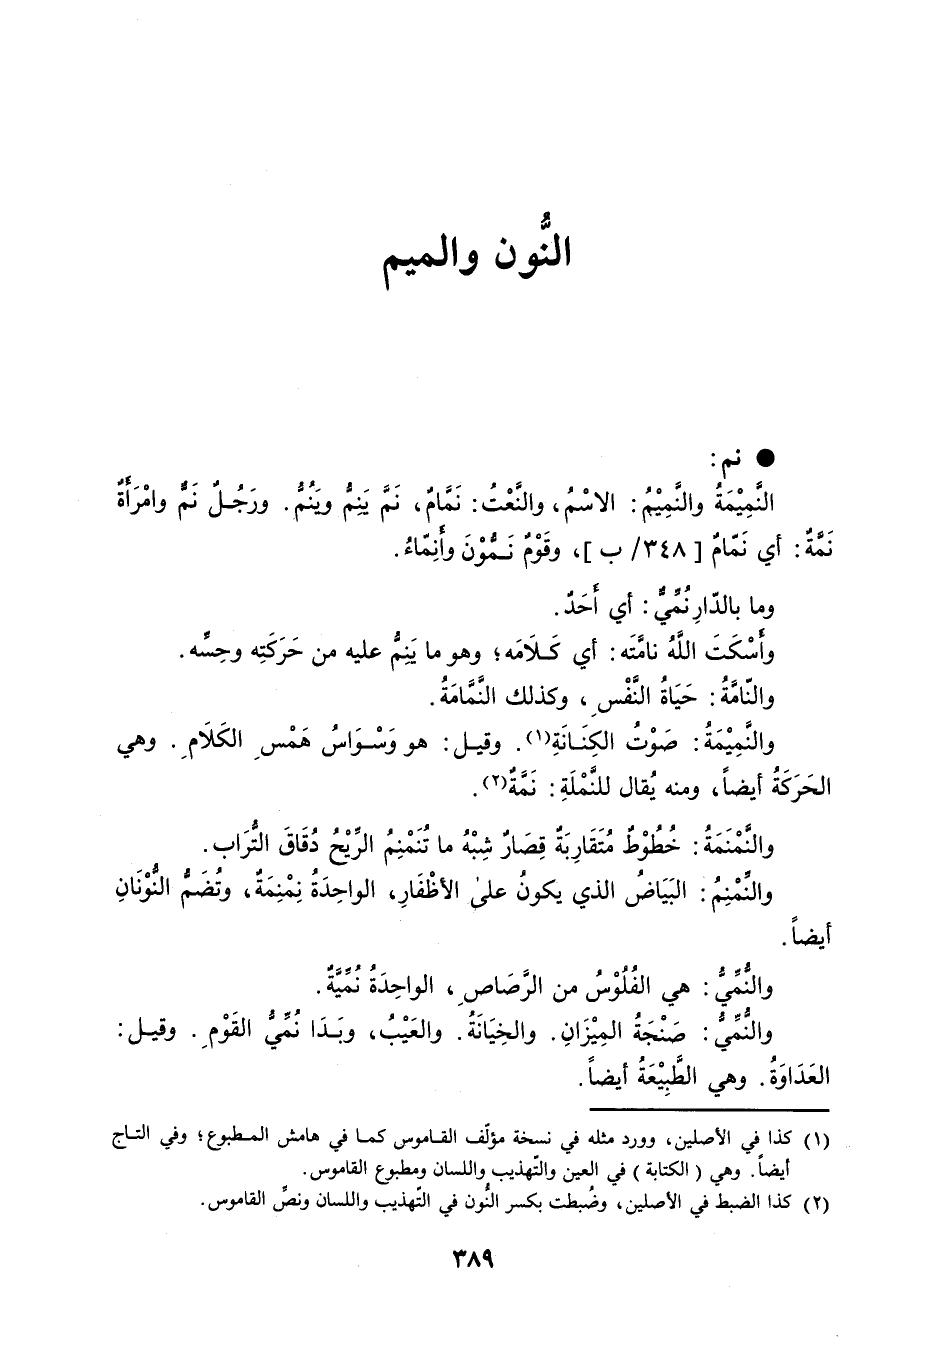 النُّون والميم
● نم:
النَّمِيْمَةُ والنَّمِيْمُ: الاسْمُ، والنَّعْتُ: نَمَّامٌ، نَمَّ يَنِمُّ ويَنُمُّ. ورَجُلٌ نَمٌّ وامْرَأَةٌ
نَمَّةٌ: أي نَمّامٌ [ ٣٤٨/ ب ]، وقَوْمٌ نَمُّوْنَ وأَنِمّاءُ.
وما بالدّارِ نُمِّيٌّ: أي أَحَدٌ.
وأَسْكَتَ اللَّهُ نامَّتَه: أي كَلَامَه؛ وهو ما يَنِمُّ عليه من حَرَكَتِه وحِسِّه.
والنّامَّةُ: حَيَاةُ النَّفْسِ، وكذلك النَّمَّامَةُ.
والنَّمِيْمَةُ: صَوْتُ الكِنَانَةِ(١). وقيل: هو وَسْوَاسُ هَمْسِ الكَلَامِ. وهي
الحَرَكَةُ أيضاً، ومنه يُقال للنَّمْلَةِ: نَمَّةٌ(٢).
والنَّمْنَمَةُ: خُطُوْطٌ مُتَقَارِبَةٌ قِصَارٌ شِبْهُ ما تُنَمْنِمُ الرِّيْحُ دُقَاقَ التُّرَاب.
والنِّمْنِمُ: البَيَاضُ الذي يكونُ على الأظْفَارِ، الواحِدَةُ نِمْنِمَةٌ، وتُضَمُّ النُّوْنَانِ
أيضاً.
والنُّمِّيُّ: هي الفُلُوْسُ من الرَّصَاصِ، الواحِدَةُ نُمِّيَّةٌ.
والنُّمِّيُّ: صَنْجَةُ المِيْزَانِ. والخِيَانَةُ. والعَيْبُ، وبَدَا نُمِّيُّ القَوْمِ. وقيل:
العَدَاوَةُ. وهي الطَّبِيْعَةُ أيضاً.
(١) كذا في الأصلين، وورد مثله في نسخة مؤلّف القاموس كما في هامش المطبوع؛ وفي التاج
أيضاً. وهي ( الكتابة ) في العين والتّهذيب واللسان ومطبوع القاموس.
(٢) كذا الضبط في الأصلين، وضُبطت بكسر النُّون في التّهذيب واللسان ونصِّ القاموس.
٣٨٩